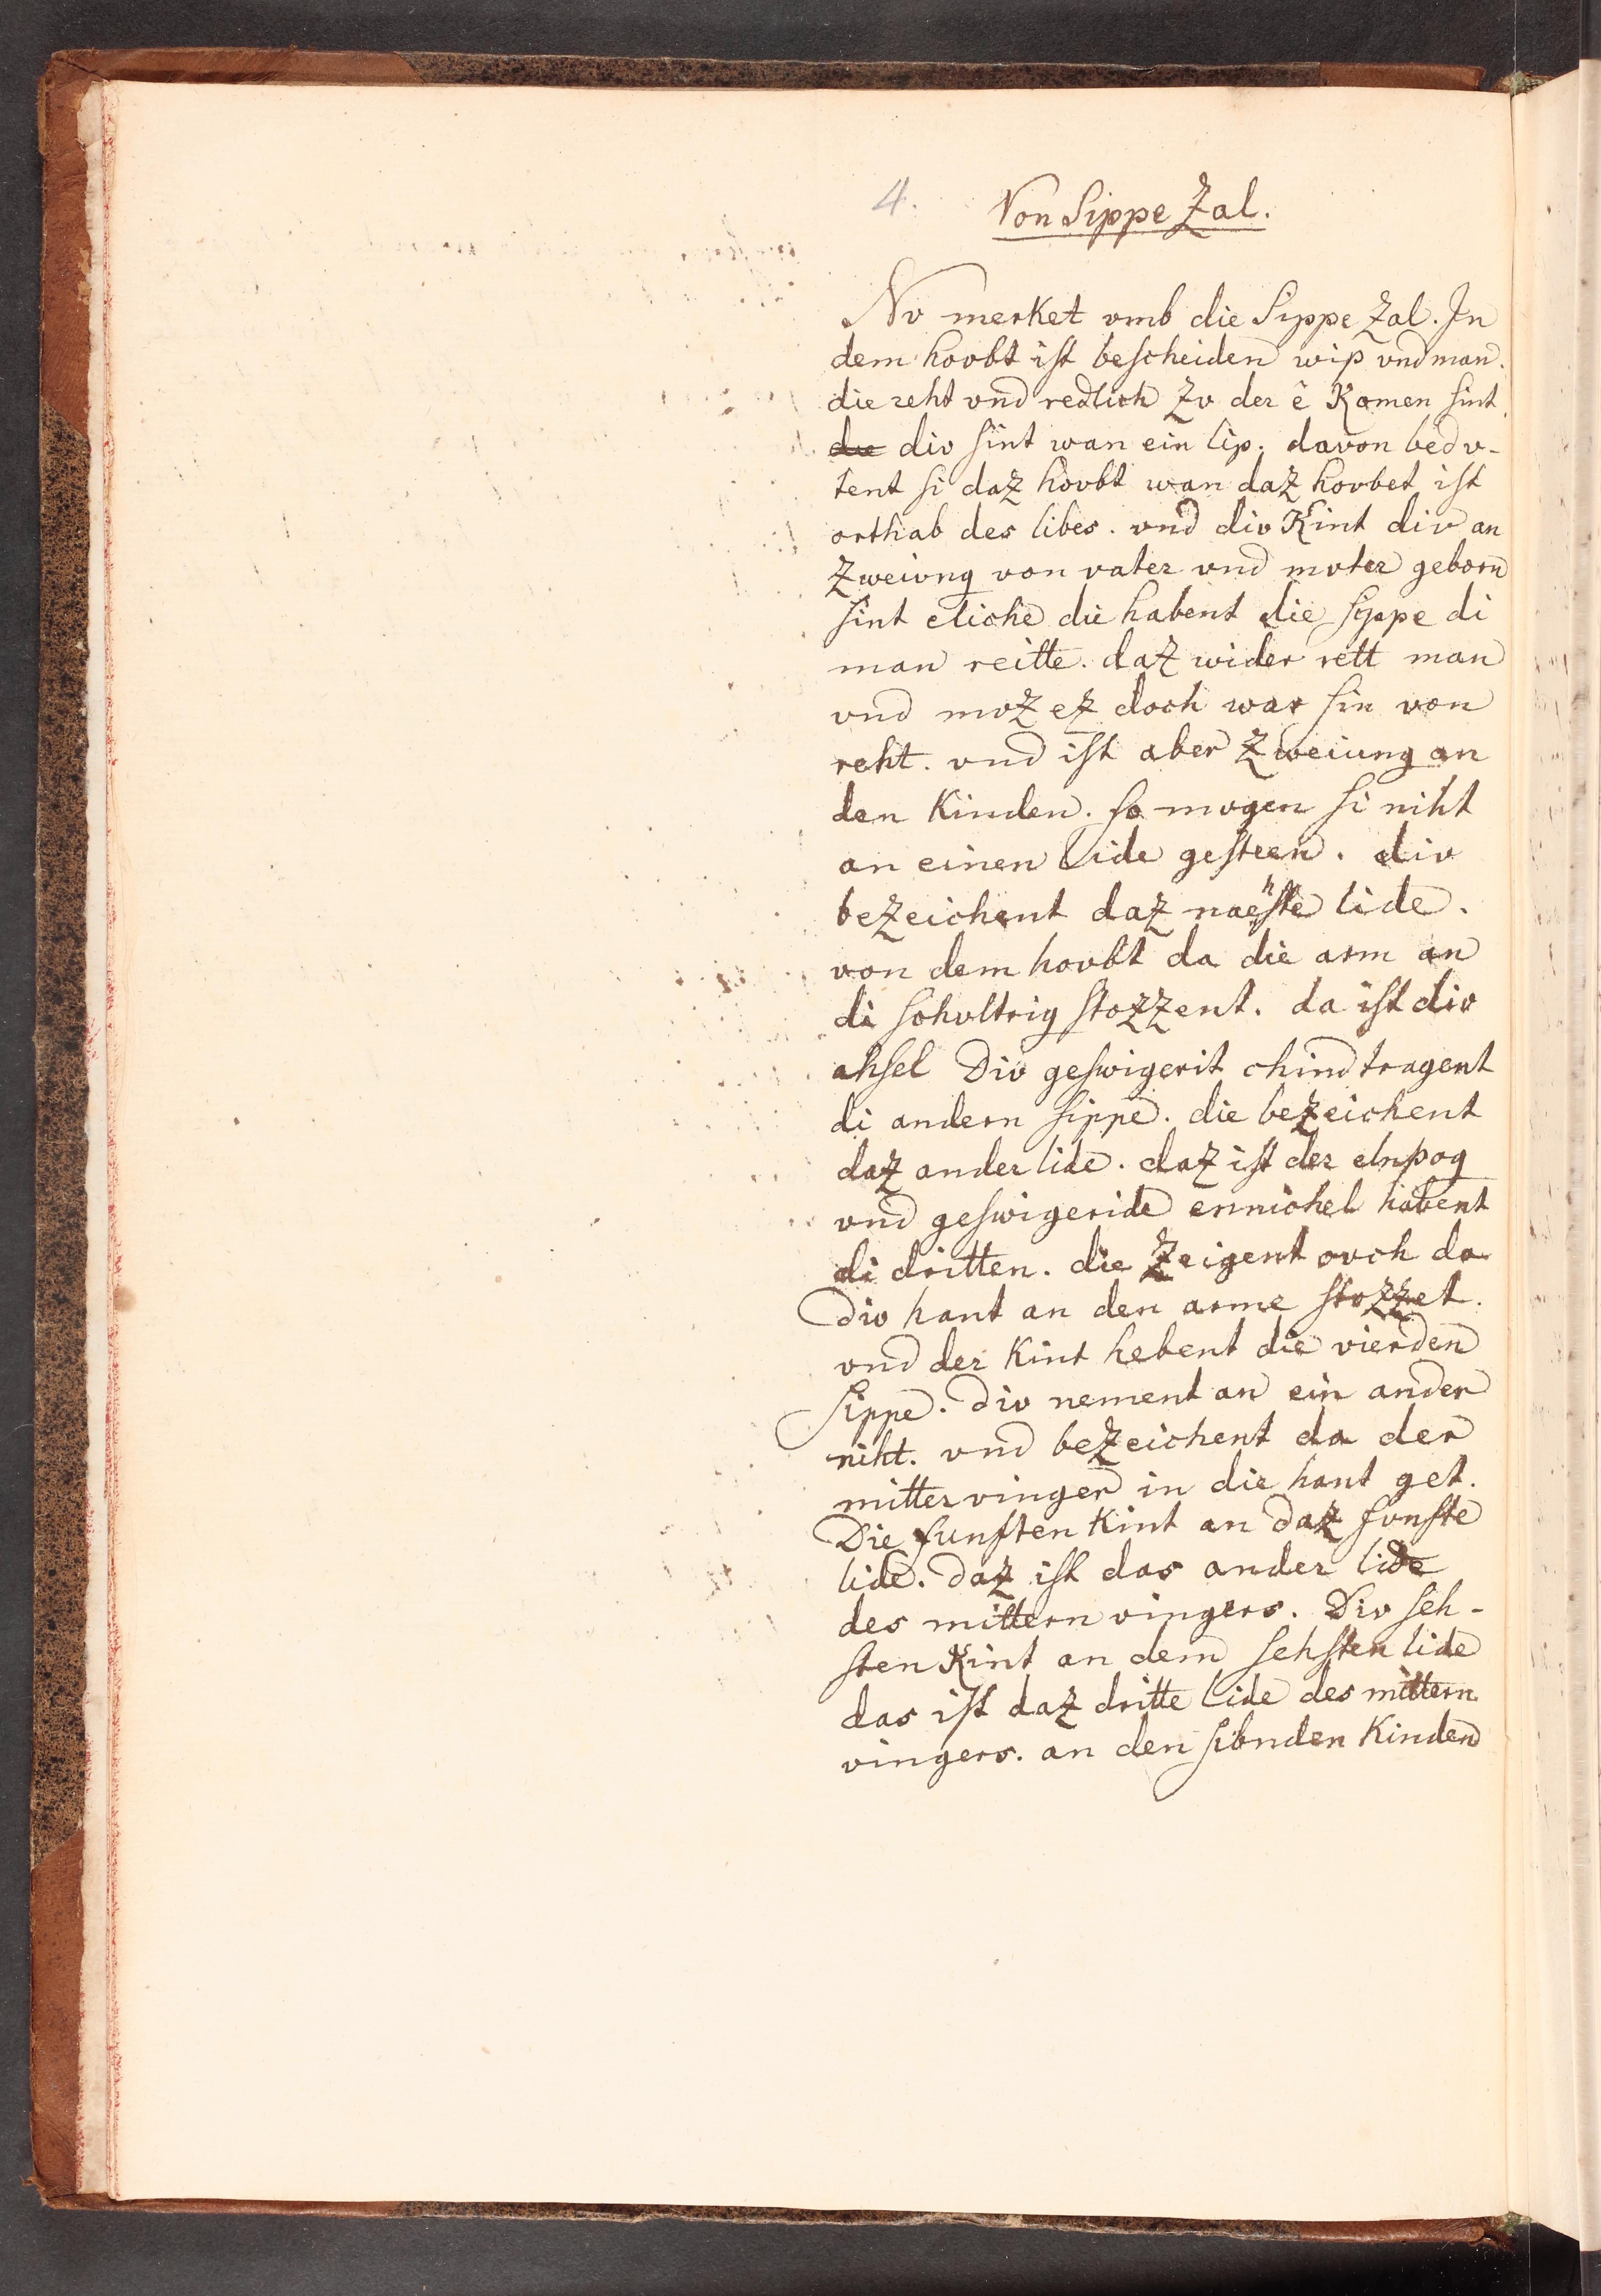 4. Von Sippe Zal.
Nv merket vmb die Sippe Zal. In
dem hovbt ist bescheiden wip vnd man.
die reht vnd redlich Zv der ê Komen sint
die div sint wan ein lip. davon bedv-
tent si daz hovbt wan daz hovbet ist
orthab des libes. vnd div Kint div an
Zweivng von vater vnd mvter geborn
sint eliche die habent die sippe di
man reitte. daz wider rett man
vnd mvz ez doch war sin von
reht. vnd ist aber Zweiung an
den Kinden. so mvgen si niht
an einen lide gesteen. div
bezeichent daz naehste lide.
von dem hovbt da die arm an
di schvltrig stozzent. da ist div
ahsel Div geswigerit chind tragent
di andern sippe. die bezeichent
daz ander lide. daz ist der elnpog
vnd geswigeride ennichel habent
di dritten. die Zeigent ovch da
div hant an den arme stozzet.
vnd der Kint hebent die vierden
Sippe. div nement an ein ander
niht. vnd bezeichent da der
mitter vinger in die hant get.
Die funften Kint an daz fvnfte
lide. daz ist das ander lide
des mittern vingers. Div seh-
sten Kint an dem sehsten lide
das ist daz dritte lide des mittern
vingers. an den sibnden Kinden